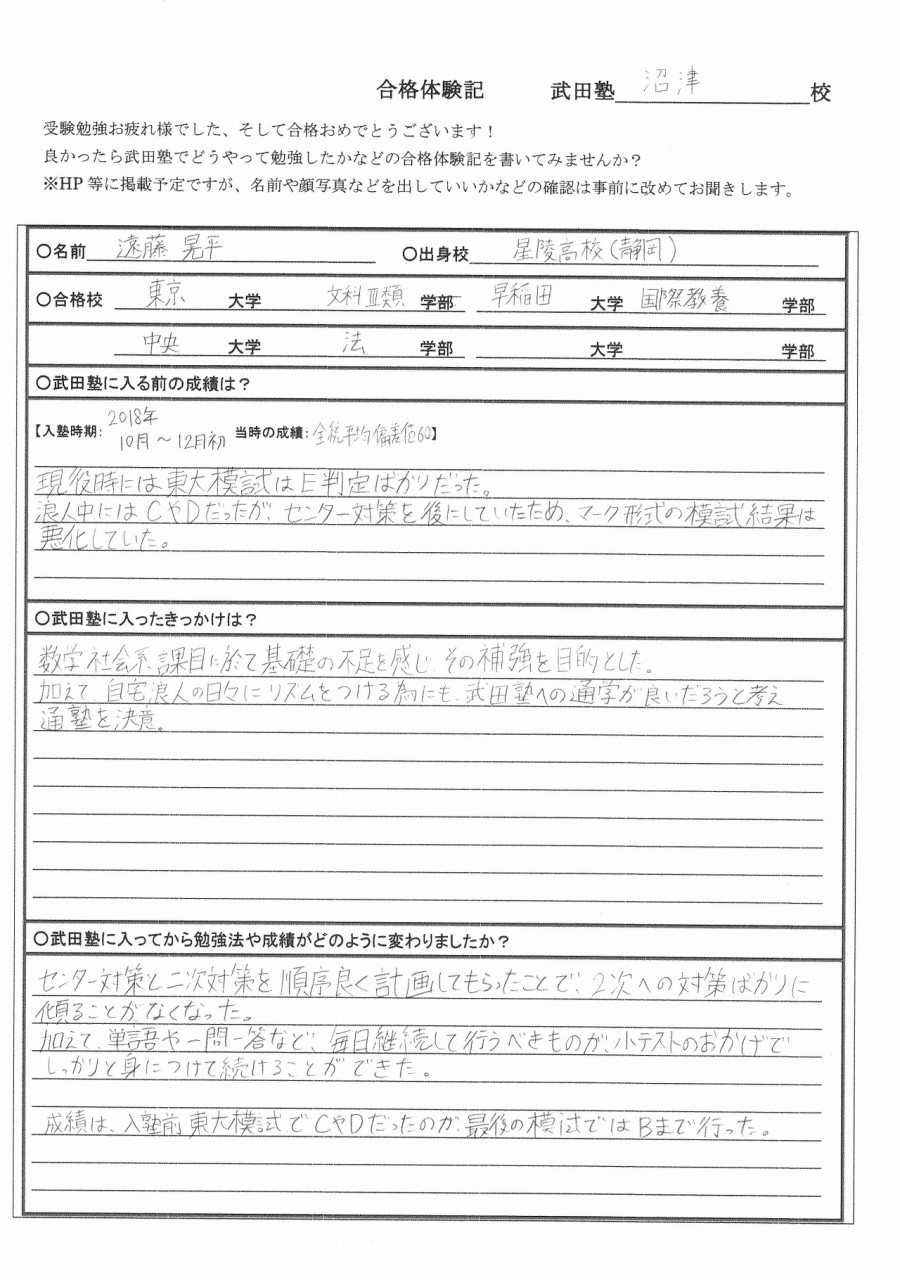 合格体験記 武田塾 沼津 校
受験勉強お疲れ様でした、そして合格おめでとうございます！
良かったら武田塾でどうやって勉強したかなどの合格体験記を書いてみませんか？
※HP 等に掲載予定ですが、名前や顔写真などを出していいかなどの確認は事前に改めてお聞きします。
〇名前 遠藤 晃平 〇出身校 星陵高校(静岡)
〇合格校 東京 大学 文科Ⅲ類 学部 早稲田 大学 国際教養 学部
中央 大学 法 学部 大学 学部
〇武田塾に入る前の成績は？
【入塾時期: 2018年 10月～12月初 当時の成績: 全統平均偏差値60】
現役時には東大模試はE判定ばかりだった。
浪人中にはCやDだったが、センター対策を後にしていたため、マーク形式の模試結果は
悪化していた。
〇武田塾に入ったきっかけは？
数学社会系課目に於て基礎の不足を感じ、その補強を目的とした。
加えて、自宅浪人の日々にリズムをつける為にも、武田塾への通学が良いだろうと考え
通塾を決意。
〇武田塾に入ってから勉強法や成績がどのように変わりましたか？
センター対策と二次対策を順序良く計画してもらったことで、2次への対策ばかりに
傾ることがなくなった。
加えて、単語や一問一答など、毎日継続して行うべきものが、小テストのおかげで
しっかりと身につけて続けることができた。
成績は、入塾前東大模試でCやDだったのが、最後の模試ではBまで行った。